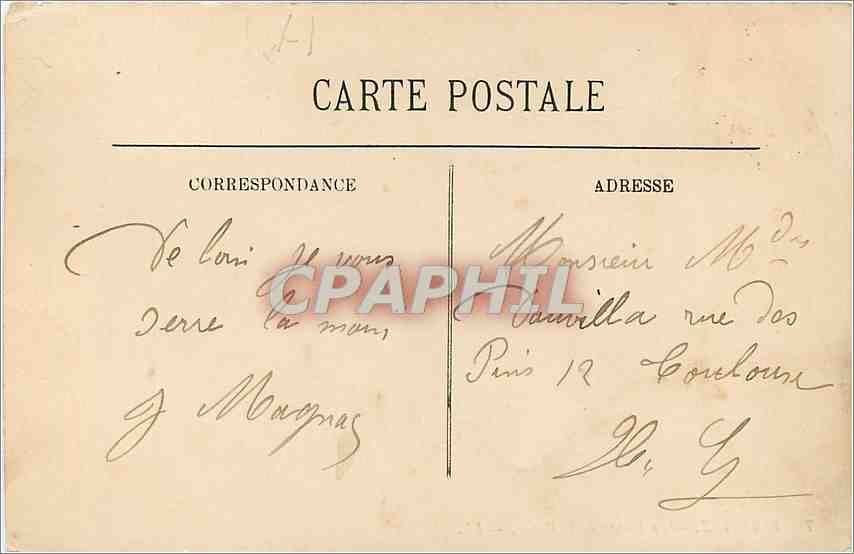 CARTE POSTALE
CORRESPONDANCE
De loin je vous
serre la main
J Magnac
ADRESSE
Monsieur Mdes
Danvilla rue des
Pins 12 Toulouse
Hte Gne
CPAPHIL